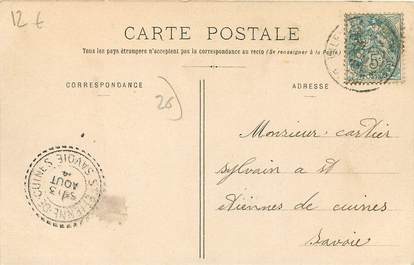 12 €
CARTE POSTALE
Tous les pays étrangers n'acceptent pas la correspondance au recto (Se renseigner à la Poste)
CORRESPONDANCE
ADRESSE
20
Monsieur cartier
sylvain a st
etiennes de cuines
savoie
ST ETIENNE-DE-CUINES
SAVOIE
AOUT
5